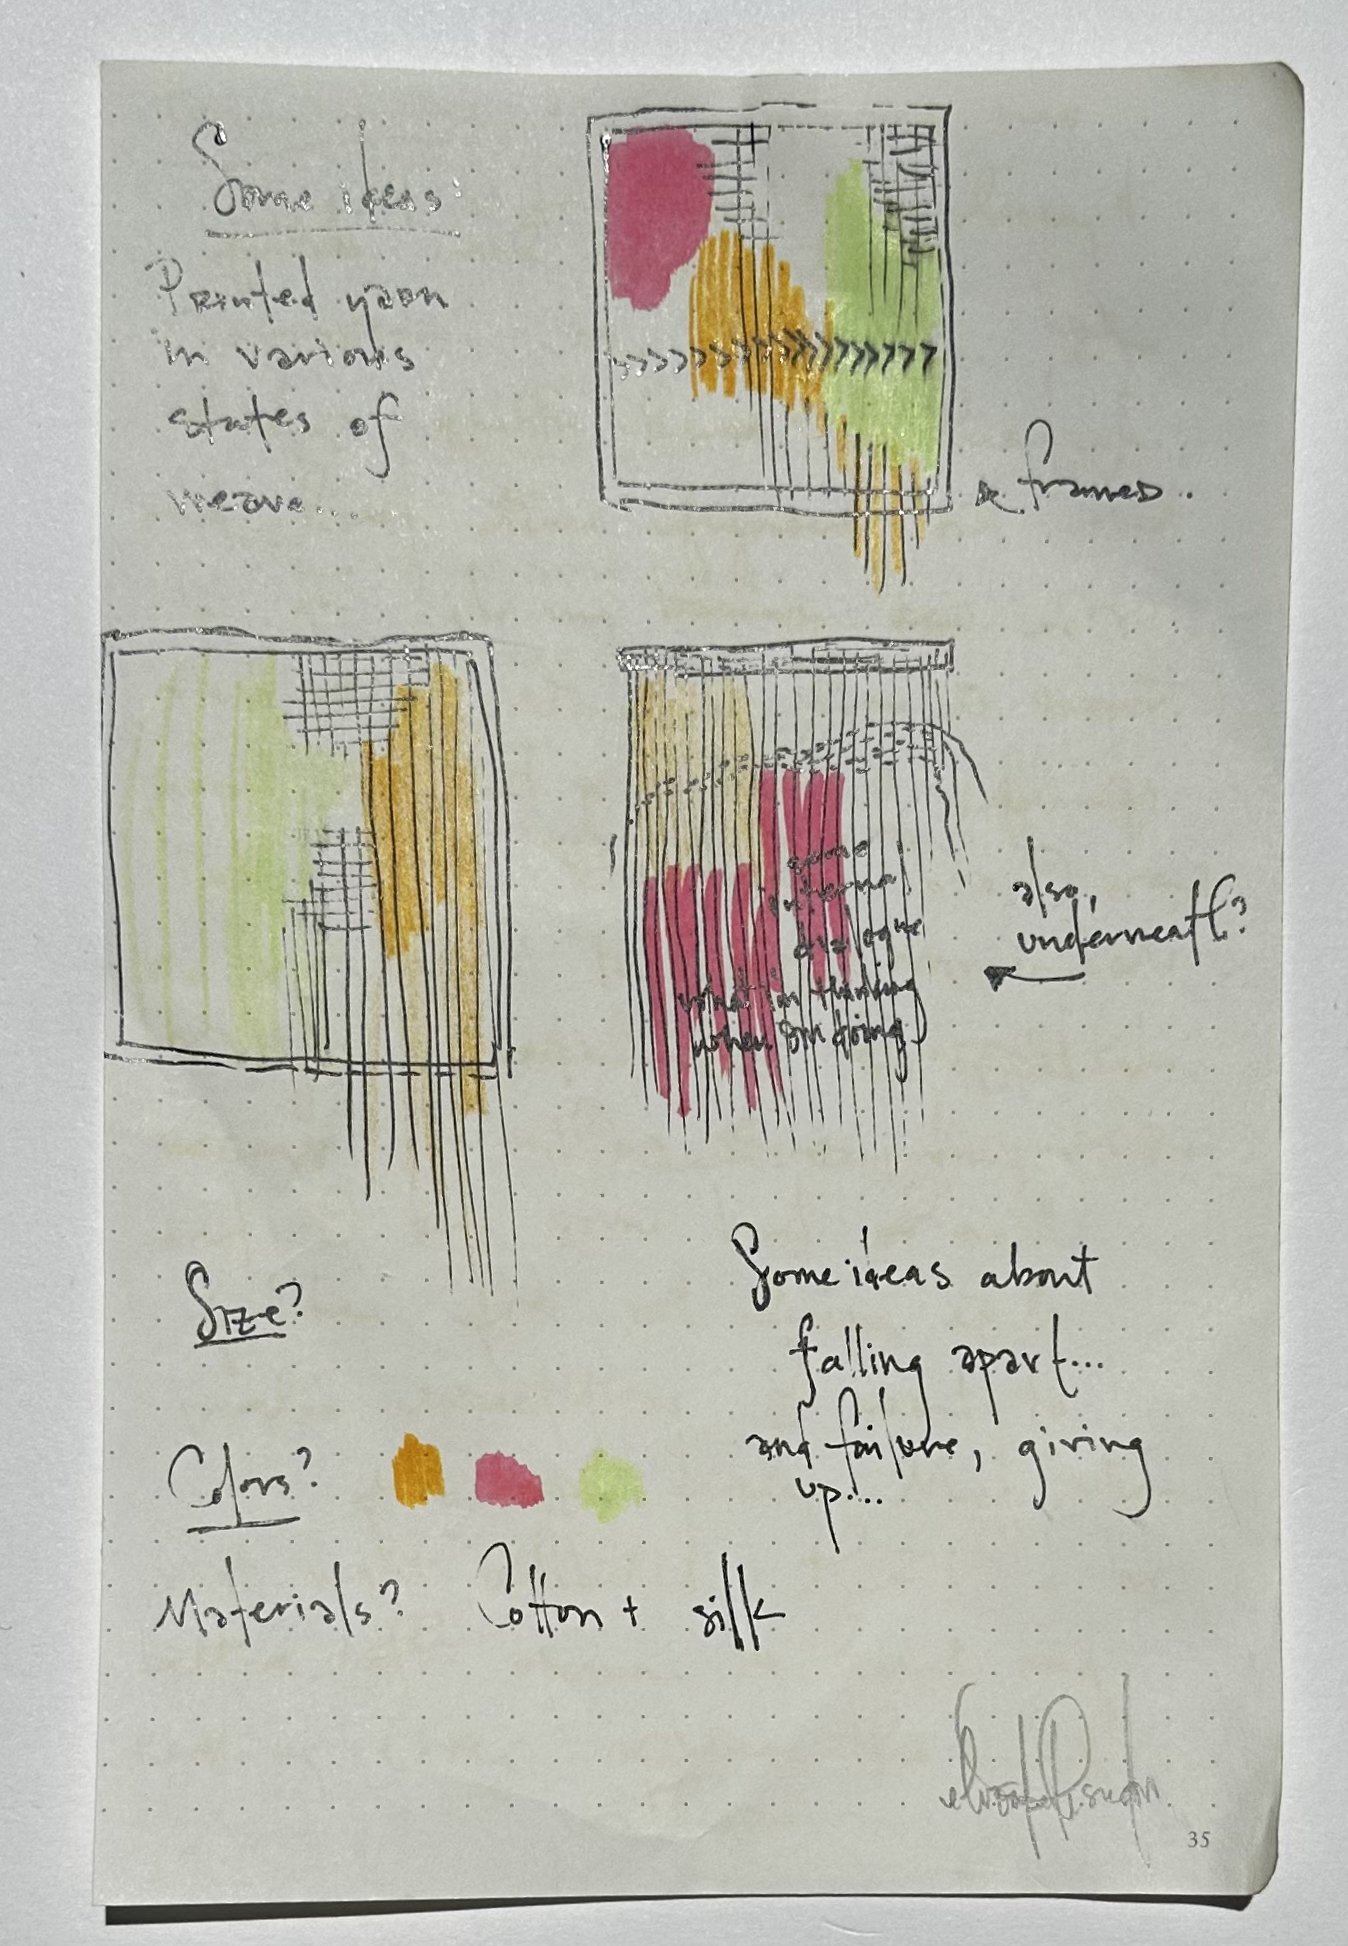 Some ideas:
Printed upon
in various
states of
weave...
frames.
some
internal
dialogue
what im thinking
when im doing
also,
underneath?
Size?
Some ideas about
falling apart...
and failure, giving
up....
Colors?
Materials? Cotton + silk
35